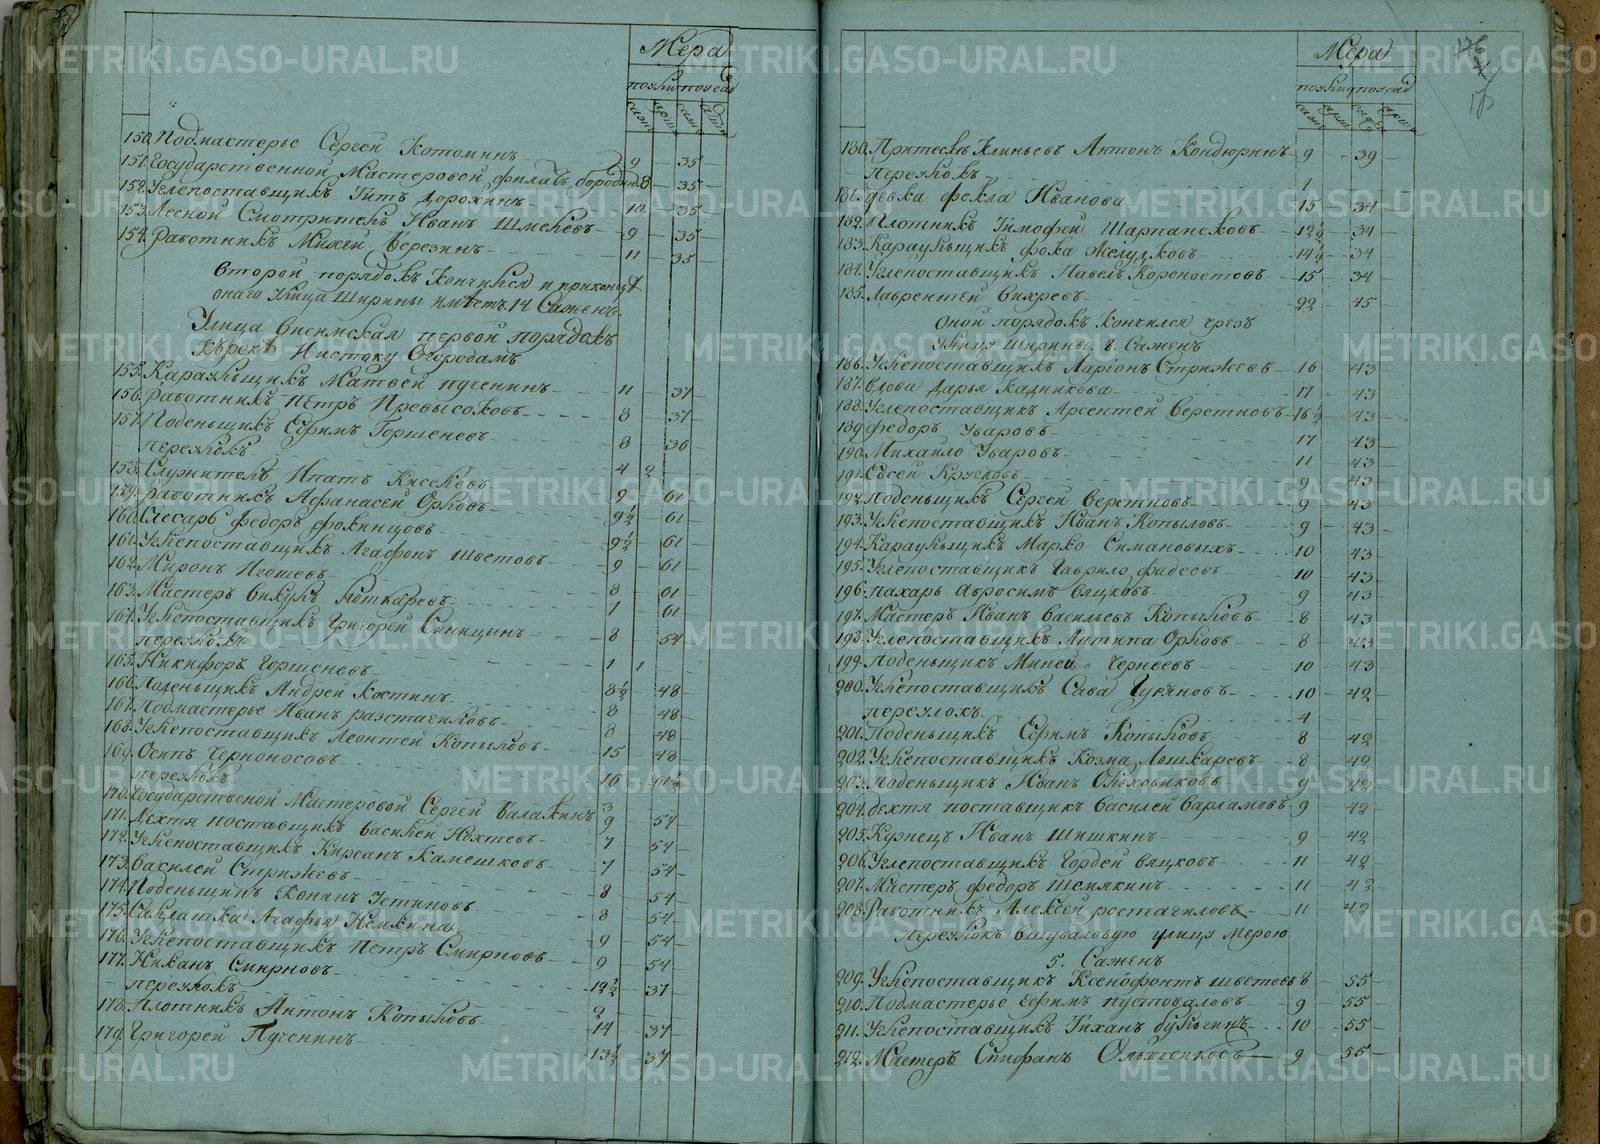 Мера
по улице по усад
саж арш саж арш
150. Подмастерье Сергей Котомин 9 35
151. Государственной Мастеровой Филат Бородин 8 35
152. Углепоставщикъ Титъ Дорохинъ 10 35
153. Лесной Смотритель Иванъ Шмелевъ 9 35
154. Работникъ Михей Березинъ 11 35
Второй порядокъ кончился и при конце
онаго улица Ширины имѣетъ 14 Саженъ
Улица Висимская первой порядокъ
къ рекѣ Истоку Огородамъ
155. Караульщикъ Матвей Пученинъ 11 37
156. Работникъ Петръ Превысоковъ 8 37
157. Поденьщикъ Ефимъ Горшеневъ 8 36
переулокъ 4 2
158. Служитель Ипатъ Киселевъ 9 61
159. Работникъ Афанасей Орловъ 9½ 61
160. Слесарь Федоръ Фоминцовъ 9½ 61
161. Углепоставщикъ Агафонъ Шветовъ 9 61
162. Миронъ Иготевъ 8 61
163. Мастеръ Викулъ Лошкаревъ 7 61
164. Углепоставщикъ Григорей Синицынъ 8 54
переулокъ 1 1
165. Никифоръ Горшеневъ 8½ 48
166. Поденьщикъ Андрей Костинъ 8 48
167. Подмастерье Иванъ Разстагиловъ 8 48
168. Углепоставщикъ Леонтей Копыловъ 15 48
169. Осипъ Черноносовъ 16
переулокъ 3
170. Государственой Мастеровой Сергей Балакинъ 9 57
171. Дехтя поставщикъ Василей Нехтевъ 7 54
172. Углепоставщикъ Кирсанъ Камешковъ 7 54
173. Василей Стрижевъ 8 54
174. Поденьщикъ Конанъ Устиновъ 8 54
175. Салдатка Агафья Немкина 9 54
176. Углепоставщикъ Петръ Смирновъ 9 54
177. Никанъ Смирновъ 12½ 37
переулокъ 2
178. Плотникъ Антонъ Копыловъ 14 37
179. Григорей Пученинъ 13½ 37
176
Мера
по улице по усад
саж арш саж арш
180. Притескъ Клиньевъ Антонъ Кондюринъ 9 39
Переулокъ 1
181. Девка Фекла Иванова 15 34
182. Плотникъ Тимофей Шарпансковъ 12½ 34
183. Караульщикъ Фока Желудковъ 14½ 34
184. Углепоставщикъ Павелъ Кореностевъ 15 34
185. Лаврентей Вихревъ 22 45
Оной порядокъ Кончился чрезъ
улицу Ширины 8. Саженъ
186. Углепоставщикъ Ларионъ Стрижевъ 16 43
187. Вдова Дарья Кадникова 17 43
188. Углепоставщикъ Арсентей Веретновъ 16½ 43
189. Федоръ Уваровъ 17 43
190. Михайло Уваровъ 11 43
191. Евсей Кругловъ 9 43
192. Поденьщикъ Сергей Веретновъ 9 43
193. Углепоставщикъ Иванъ Копыловъ 9 43
194. Караульщикъ Марко Симановыхъ 10 43
195. Углепоставщикъ Гаврило Фадеевъ 10 43
196. Пахарь Авросимъ Вяцковъ 9 43
197. Мастеръ Иванъ Васильевъ Копыловъ 8 43
198. Углепоставщикъ Антипа Орловъ 8 43
199. Поденьщикъ Миней Чернеевъ 10 43
200. Углепоставщикъ Сава Гуряновъ 10 42
переулокъ 4
201. Поденьщикъ Ефимъ Копыловъ 8 42
202. Углепоставщикъ Козма Лошкаревъ 8 42
203. Поденьщикъ Иванъ Ольховиковъ 9 42
204. Дехтя поставщикъ Василей Варламовъ 9 42
205. Кузнецъ Иванъ Шишкинъ 9 42
206. Углепоставщикъ Гордей Вяцковъ 11 42
207. Мастеръ Федоръ Шемякинъ 11 42
208. Работникъ Алексей Ростагиловъ 11 42
Переулокъ в Шуваловую улицу Мерою
5. Саженъ
209. Углепоставщикъ Ксенофонтъ Шветовъ 8 55
210. Подмастерье Ефимъ Пустоваловъ 9 55
211. Углепоставщикъ Тиханъ Булыгинъ 10 55
212. Мастеръ Стифанъ Ольховиковъ 9 55
METRIKI.GASO-URAL.RU